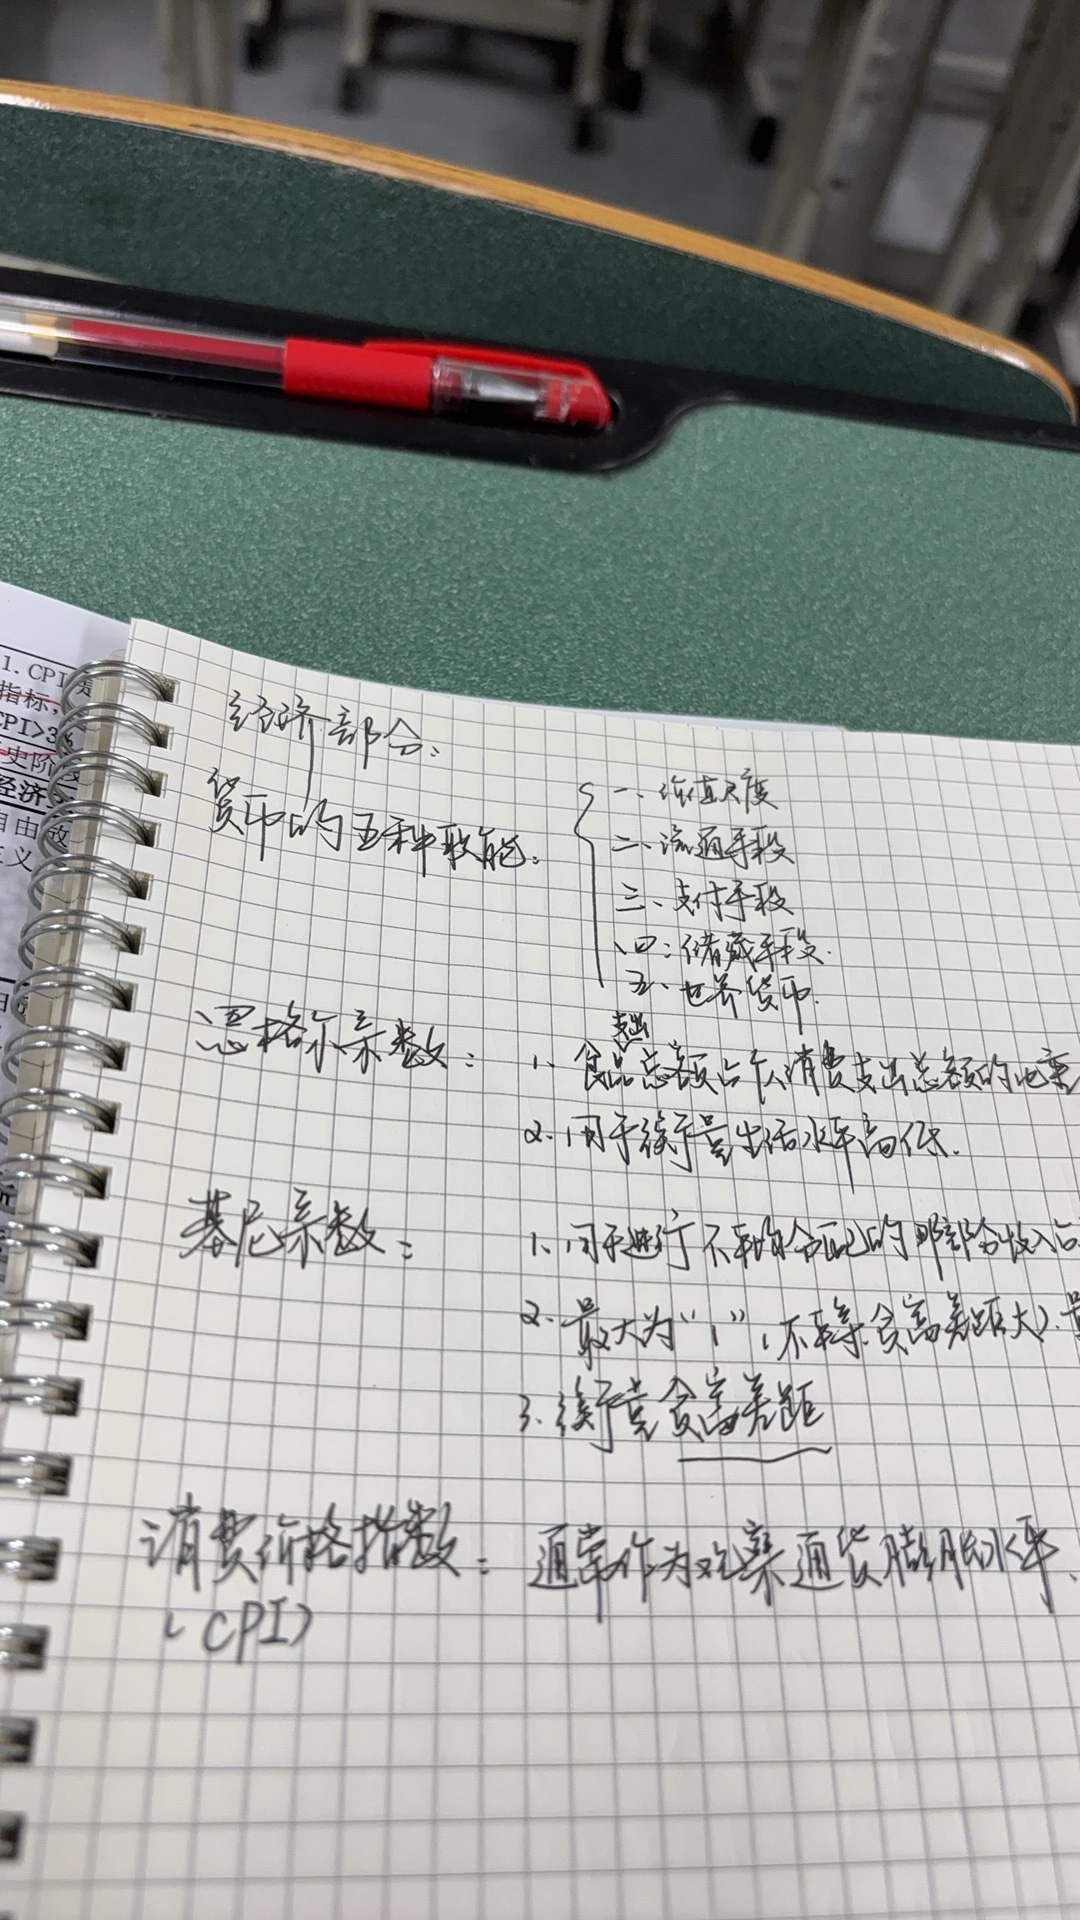 1. CPI
指标,
CPI>3%
史阶
经济
自由放
义
经济部分:
货币的五种职能:
一、价值尺度
二、流通手段
三、支付手段
四: 储藏手段.
五、世界货币.
恩格尔系数:
支出
1. 食品总额占个人消费支出总额的比重
2. 用于衡量生活水平高低.
基尼系数:
1. 用于进行不平均分配的那部分收入占
2. 最大为“1”, (不平等.贫富差距大).最
3. 衡量贫富差距
消费价格指数: 通常作为观察通货膨胀水平.
(CPI)